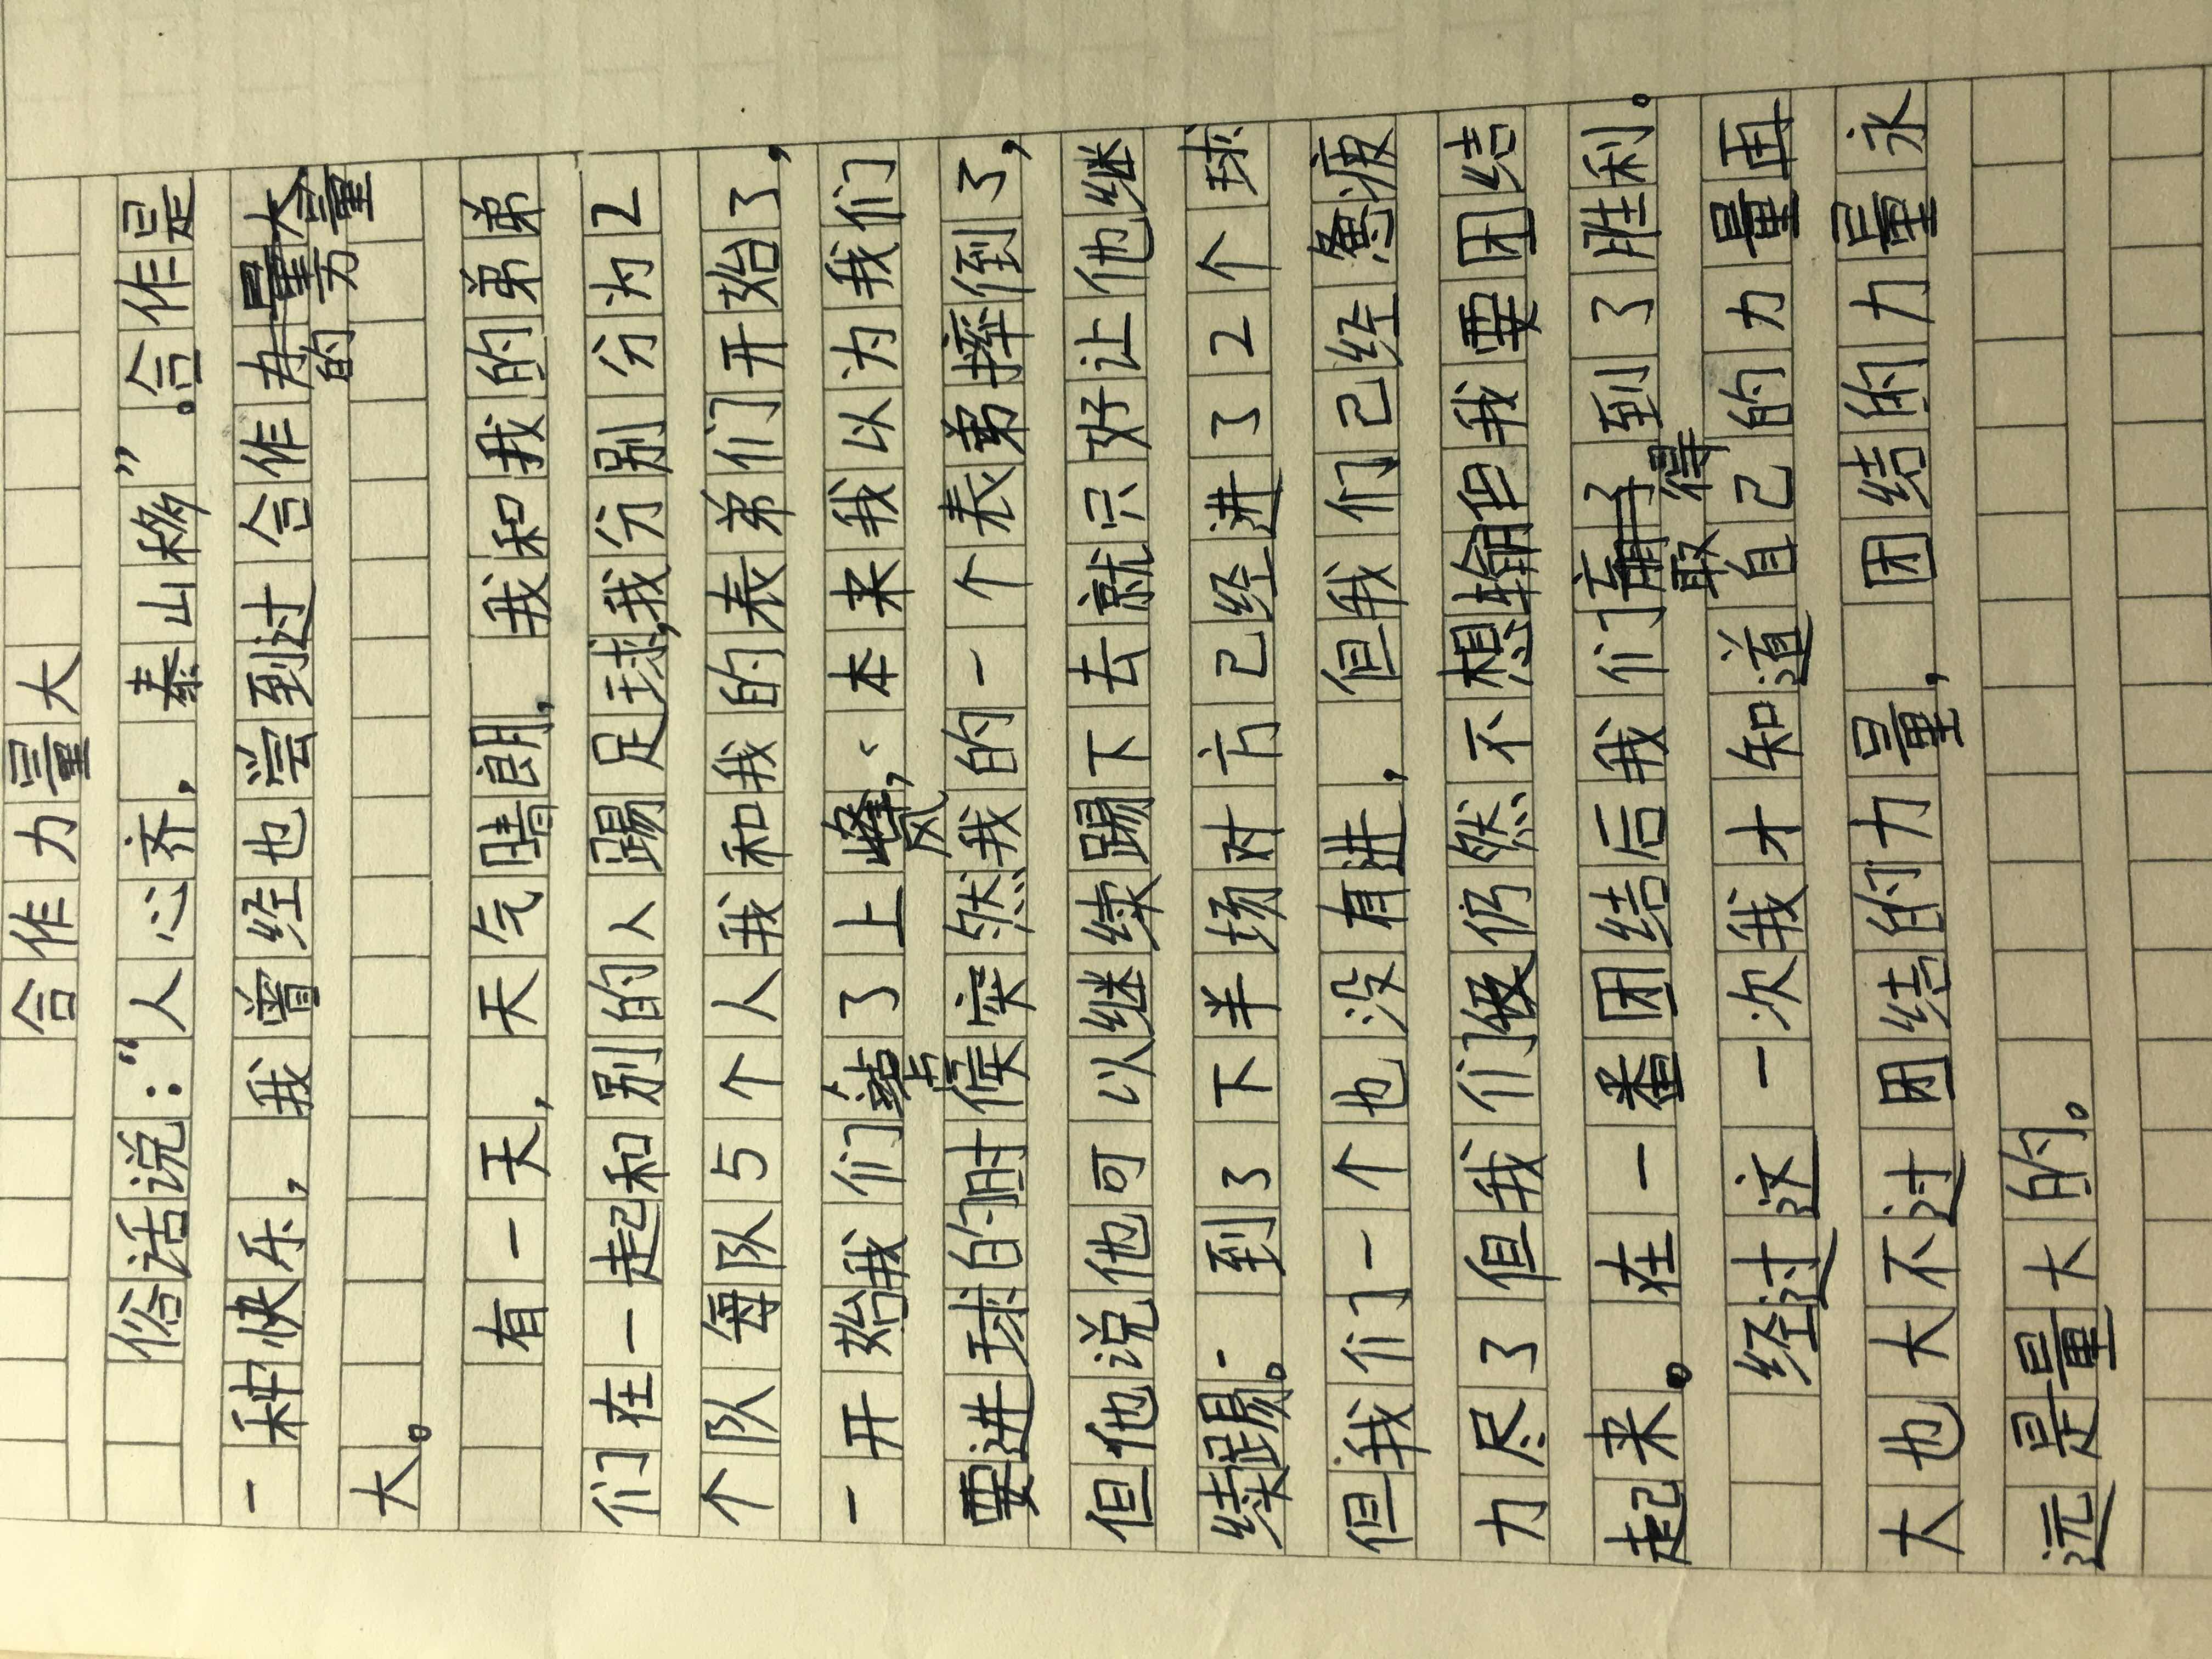 合作力量大
俗话说：“人心齐，泰山移”。合作是
一种快乐，我曾经也尝到过合作的力量
大。
有一天，天气晴朗，我和我的弟弟
们在一起和别的人踢足球，我分别分为2
个队每队5个人我和我的表弟们开始了，
一开始我们占了上风，本来我以为我们
要进球的时候突然我的一个表弟摔倒了，
但他说他可以继续踢下去就只好让他继
续踢。到了下半场对方已经进了2个球
但我们一个也没有进，但我们已经疲
力尽了但我们仍然不想输但我要团结
起来。在一番团结后我们取得到了胜利。
经过这一次我才知道自己的力量再
大也大不过团结的力量，团结的力量永
远是量大的。